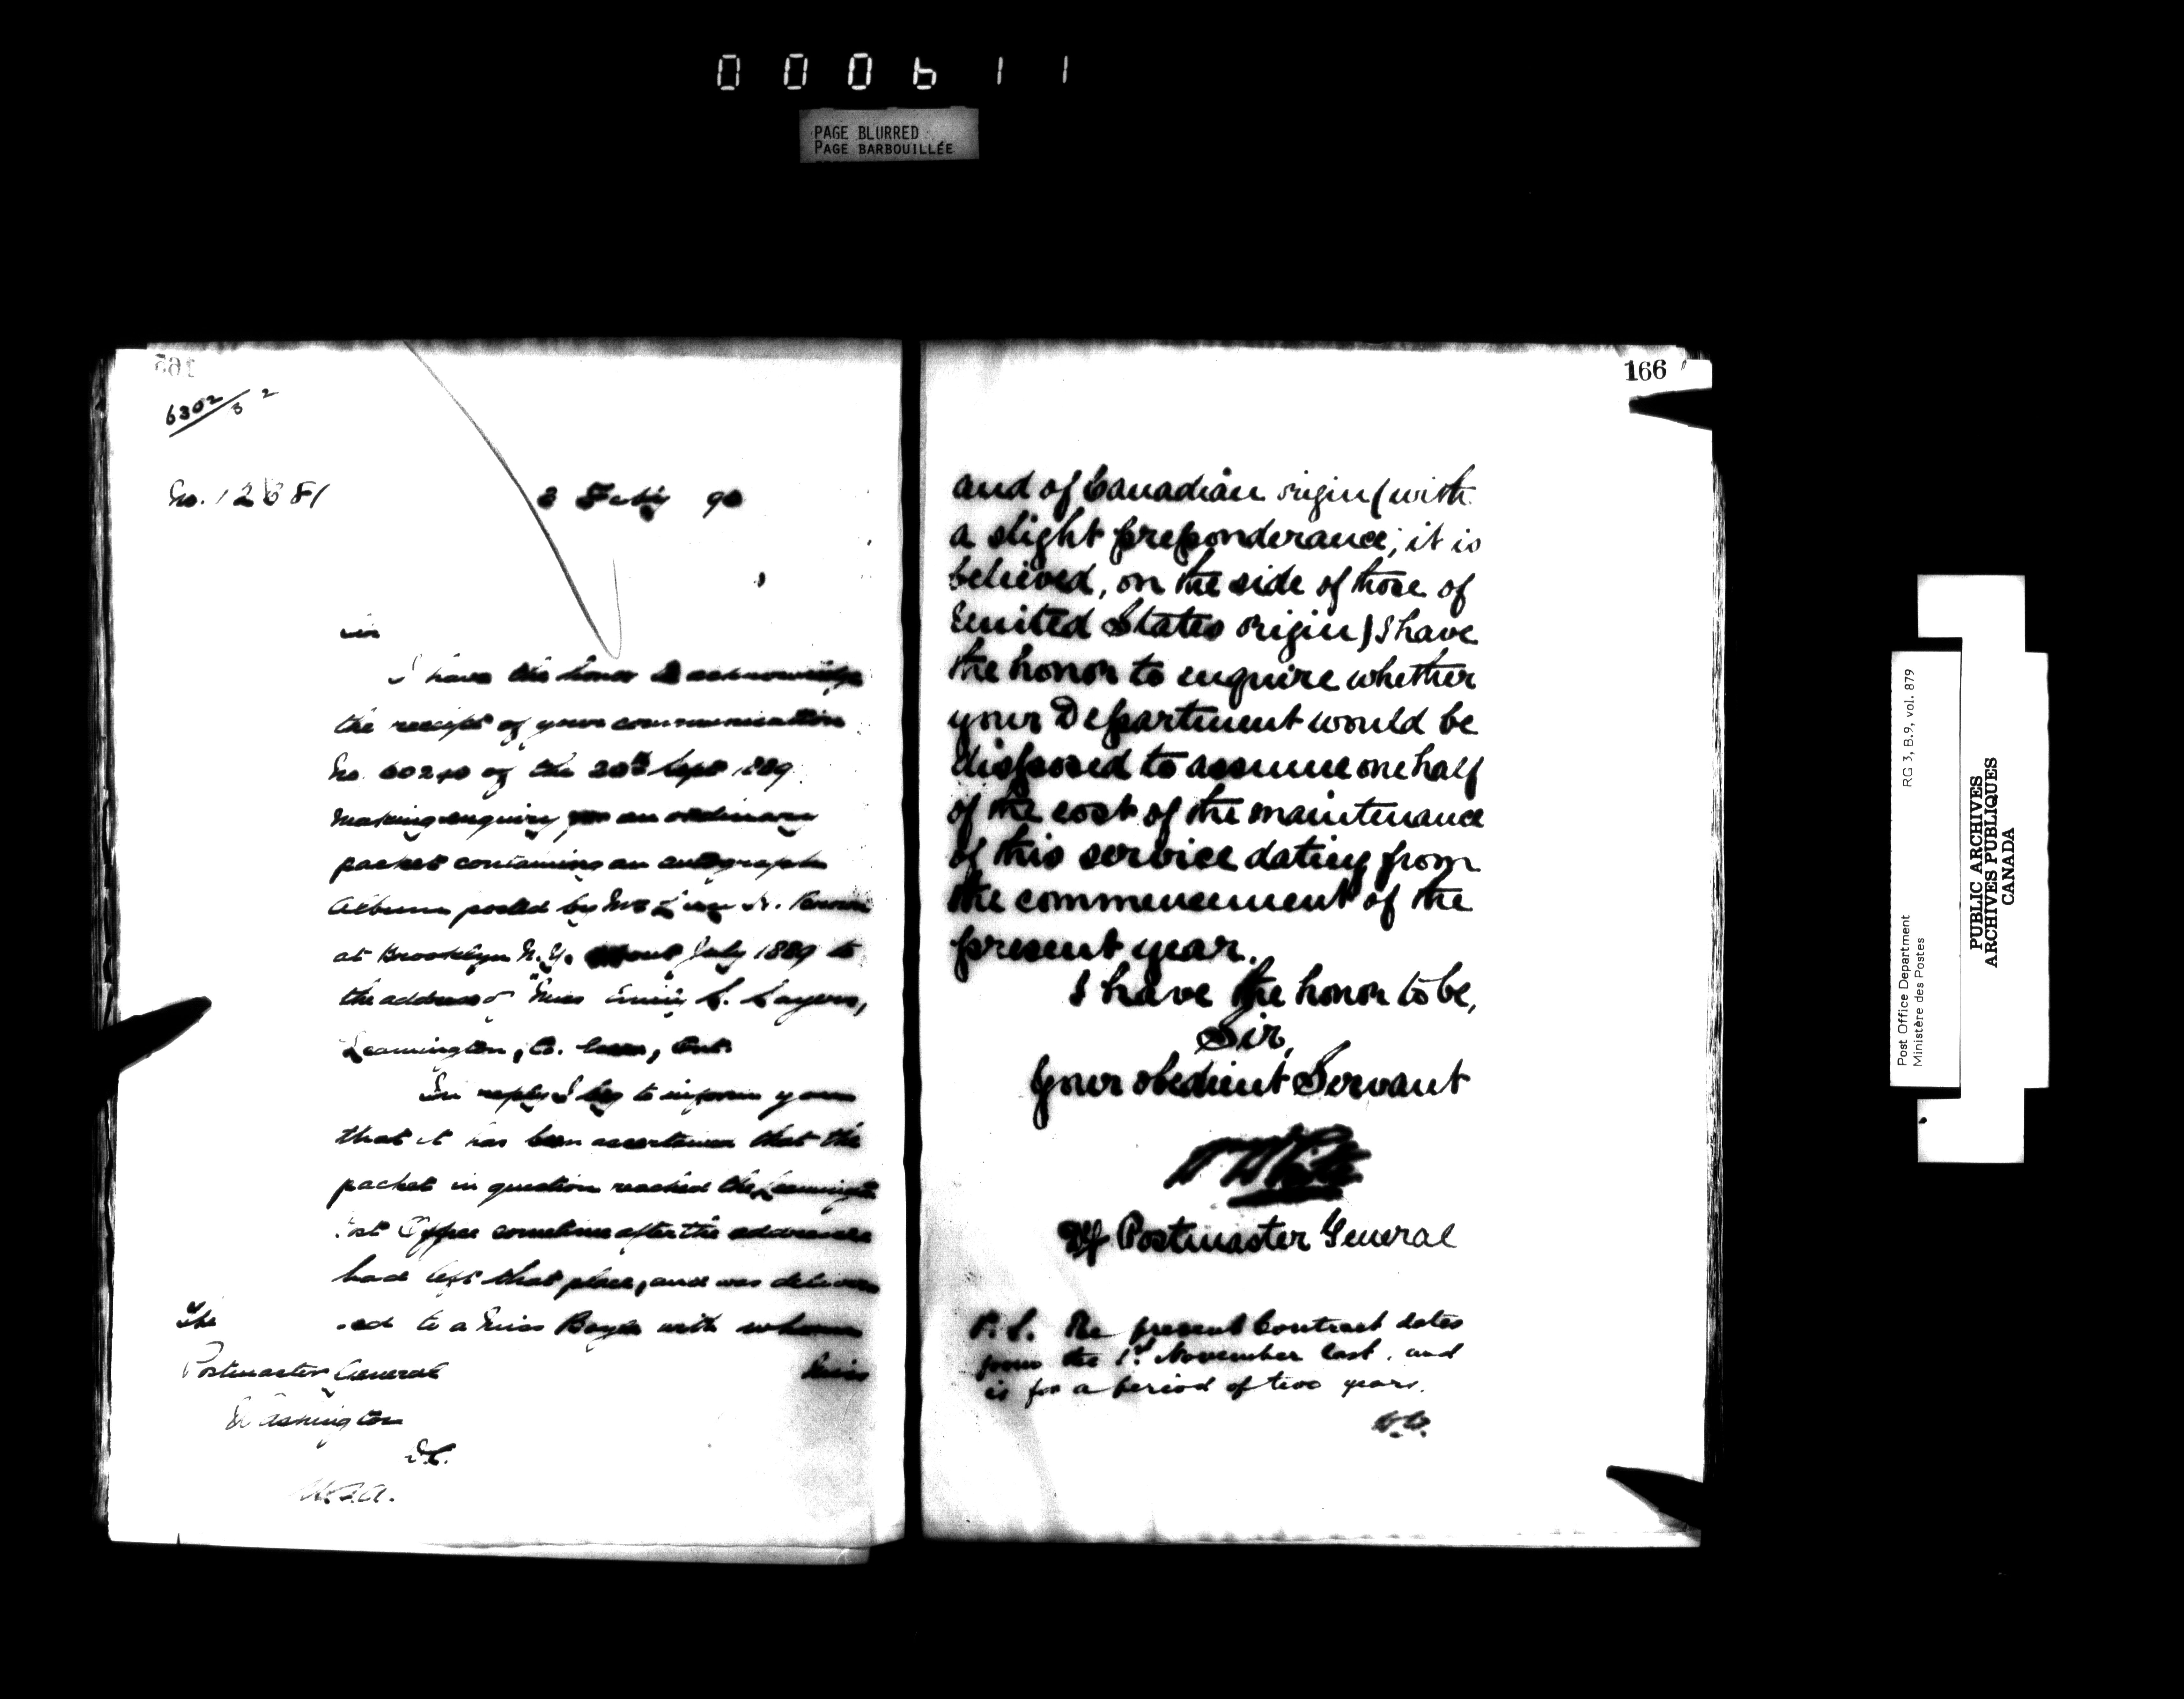 000611
PAGE BLURRED
PAGE BARBOUILLÉE
165
6302/3 2
No. 12681
3 Feby 90
I have the honor to acknowledge
the receipt of your communication
No. 60240 of the 20th Sept 1889
making enquiry for an ordinary
packet containing an autograph
Album posted by
at Brooklyn N.Y. about July 1889 to
the address of "Miss Emily L. Sayers,
Leamington, Co. Essex, Ont.
In reply I beg to inform you
that it has been ascertained that the
packet in question reached the Leamingt
Post Office sometime after the addressee
had left that place, and was deliver
ed to a Miss Boyle with whom
Miss
The
Postmaster General
Washington
D.C.
U.S.A.
166
and of Canadian origin (with
a slight preponderance, it is
believed, on the side of those of
United States origin) I have
the honor to enquire whether
your Department would be
disposed to assume one half
of the cost of the maintenance
of this service dating from
the commencement of the
present year.
I have the honor to be,
Sir,
Your obedient Servant
W White
Dy Postmaster General
P.S. The present Contract dates
from the 1st November last, and
is for a period of two years.
Post Office Department RG 3, B.9, vol. 879
Ministère des Postes
PUBLIC ARCHIVES
ARCHIVES PUBLIQUES
CANADA